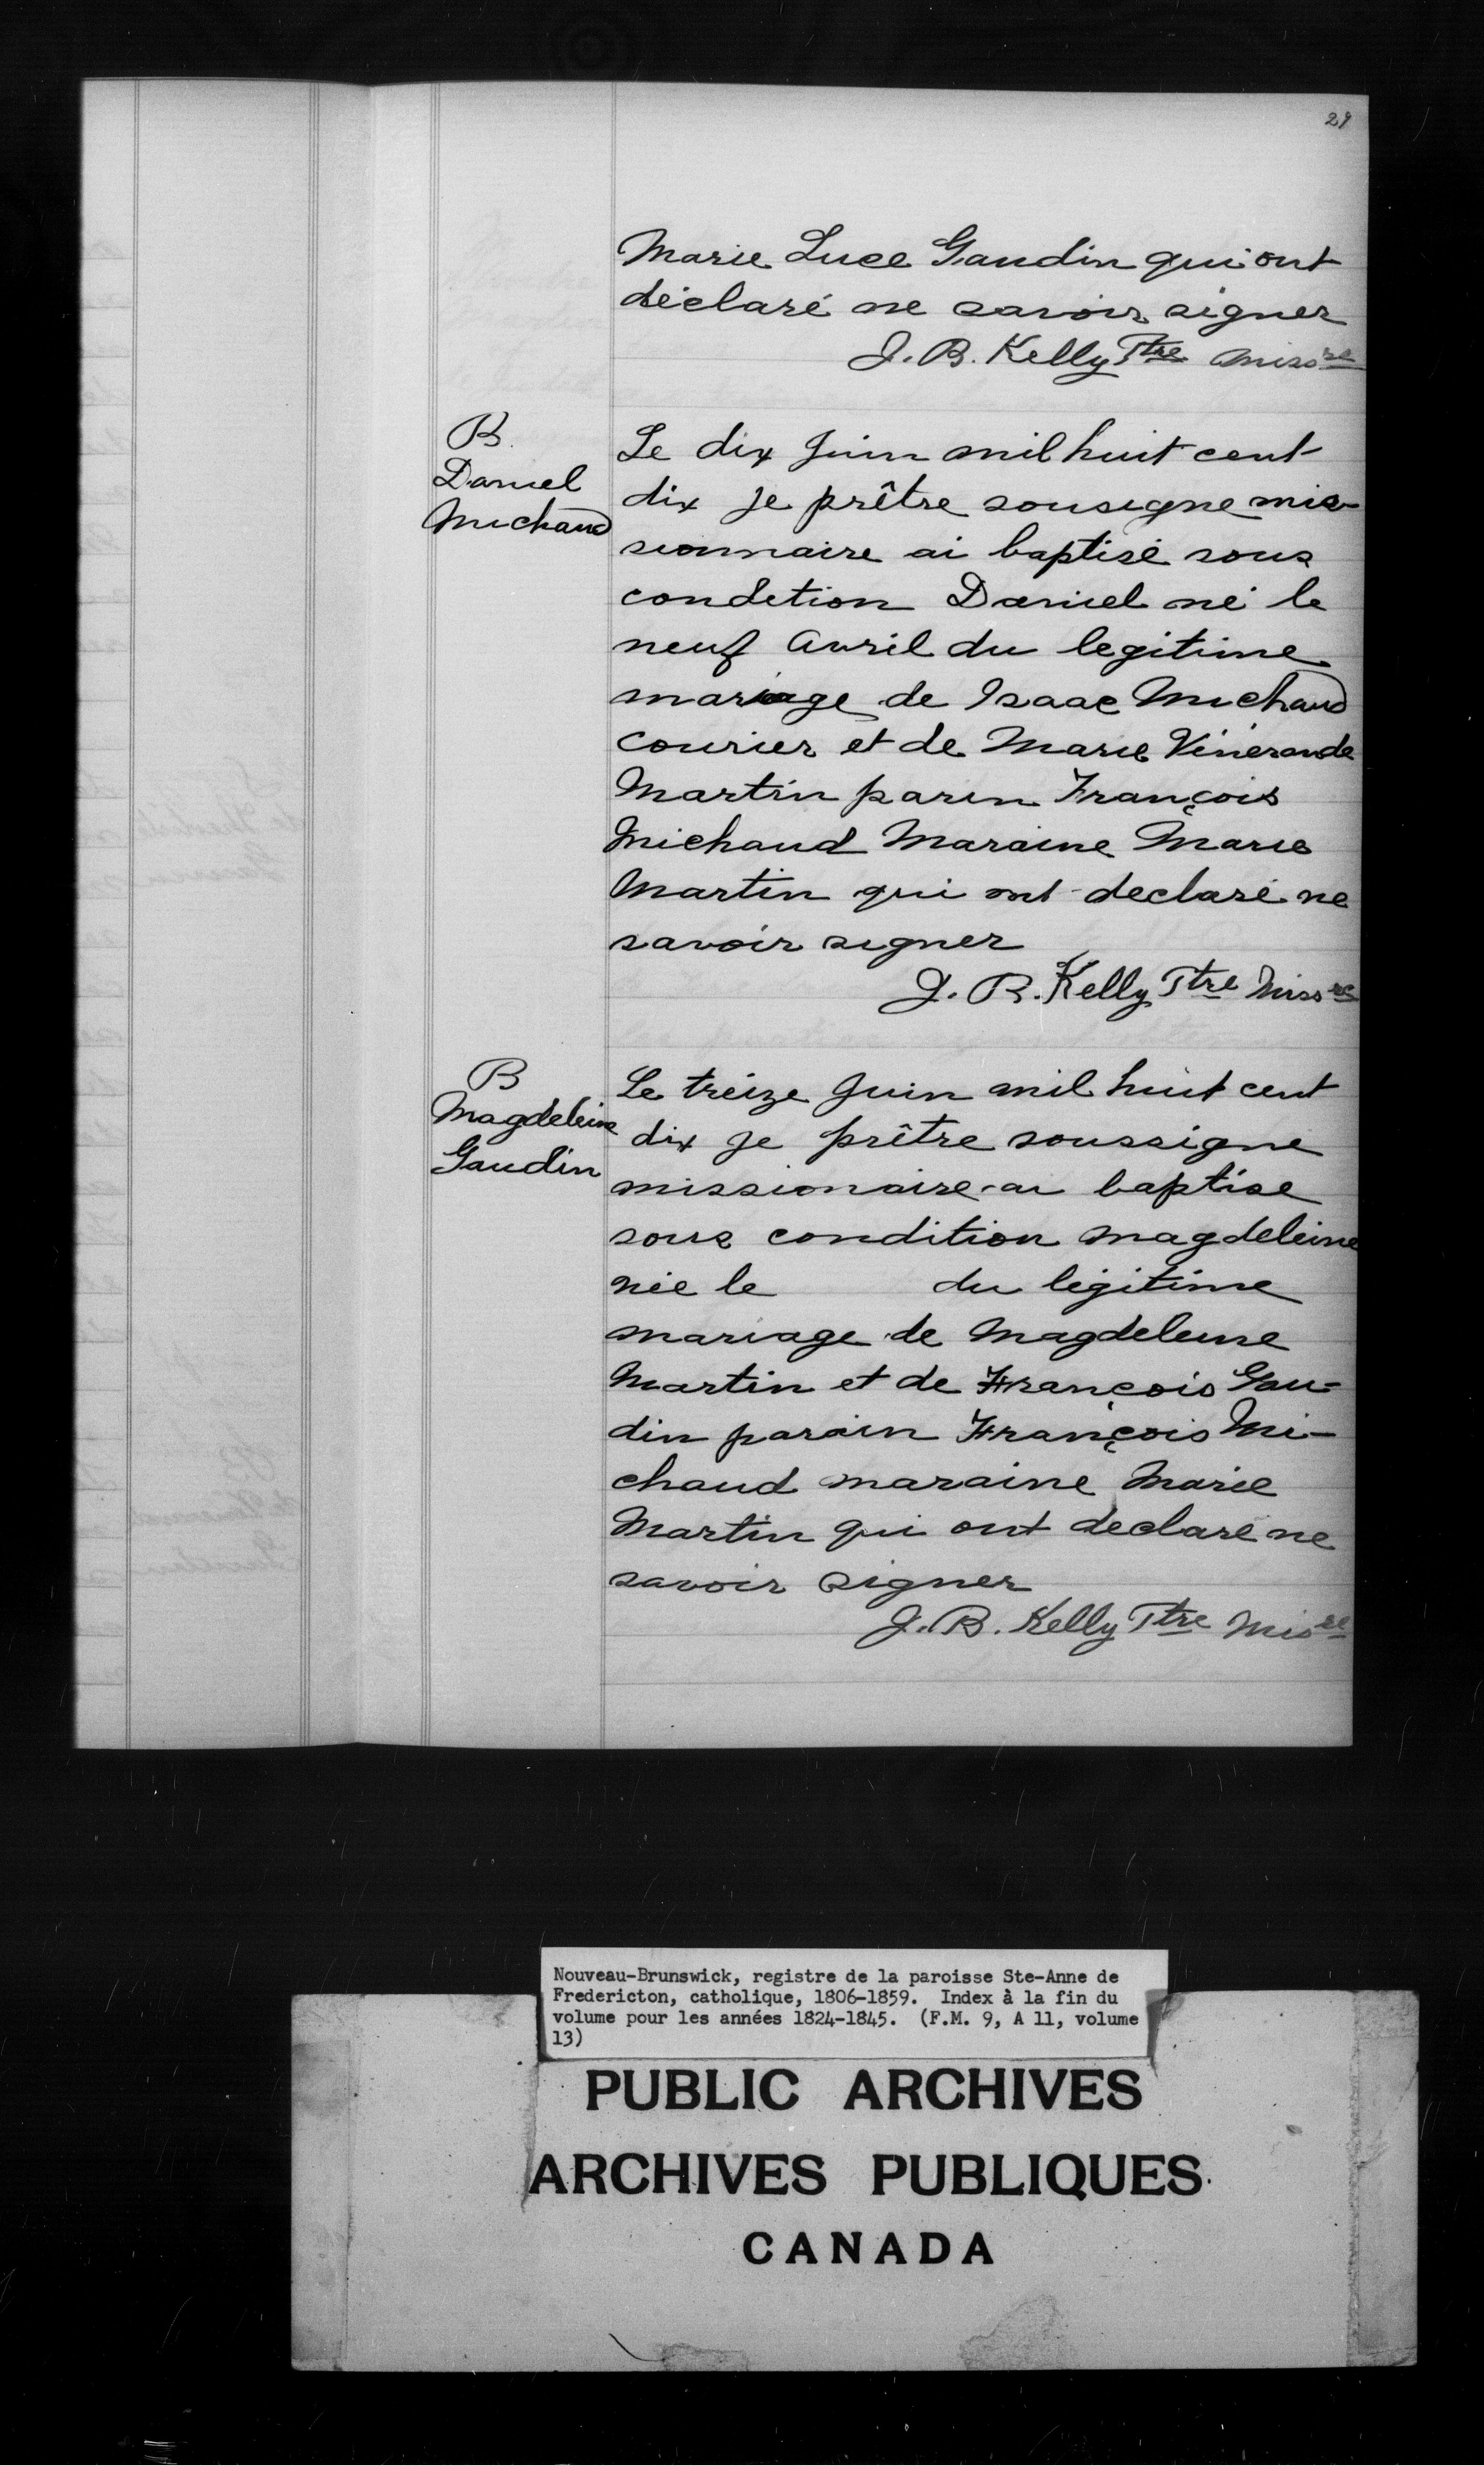 29
Marie Luce Gaudin qui ont
déclaré ne savoir signer
J. B. Kelly Ptre Missre
B.
Daniel
Michaud
Le dix Juin mil huit cent
dix je prêtre sousigne mis-
sionnaire ai baptisé sous
condetion Daniel né le
neuf Avril du legitime
mariage de Isaac Michaud
Courier et de Marie Vénérande
Martin parin François
Michaud Maraine Marie
Martin qui ont declaré ne
savoir signer
J. B. Kelly Ptre Missre
B
Magdeleine
Gaudin
Le treize Juin mil huit cent
dix je prêtre soussigne
missionaire ai baptise
sous condition Magdeleine
née le du légitime
mariage de Magdeleine
Martin et de François Gau-
din parain François Mi-
chaud maraine Marie
Martin qui ont declaré ne
savoir signer
J. B. Kelly Ptre Misre
Nouveau-Brunswick, registre de la paroisse Ste-Anne de
Fredericton, catholique, 1806-1859. Index à la fin du
volume pour les années 1824-1845. (F.M. 9, A 11, volume
13)
PUBLIC ARCHIVES
ARCHIVES PUBLIQUES
CANADA